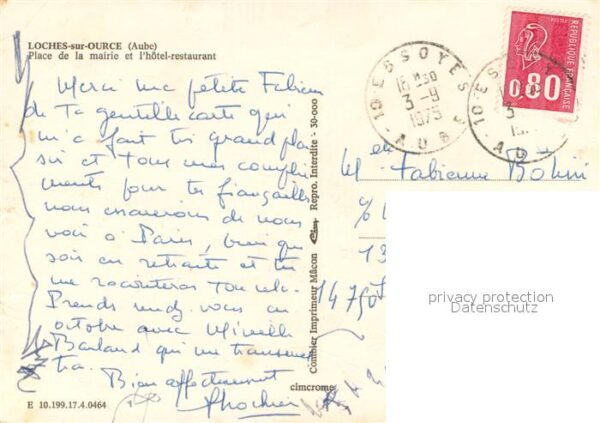 LOCHES-sur-OURCE (Aube)
Place de la mairie et l'hôtel-restaurant
Merci ma petite Fabien
de Ta gentille carte qui
m'a fait très grand plai
sir et Tous mes compli
ments pour tes fiançailles
nous essaierons de nous
voir à Paris, bien que
sois en retraite et tu
me raconteras Tout cela.
Prends rendez vous en
octobre avec Mireille
Barland qui me transmet
tra.
Bien affectueusement
E 10.199.17.4.0464
cimcrome
Combier Imprimeur Mâcon
Repro. Interdite - 30-000
10 ESSOYES
16 H30
3-9
1975
AUBE
10 ESSOYES
3
AUBE
0,80
REPUBLIQUE FRANÇAISE
Melle Fabienne
13
14750
privacy protection
Datenschutz